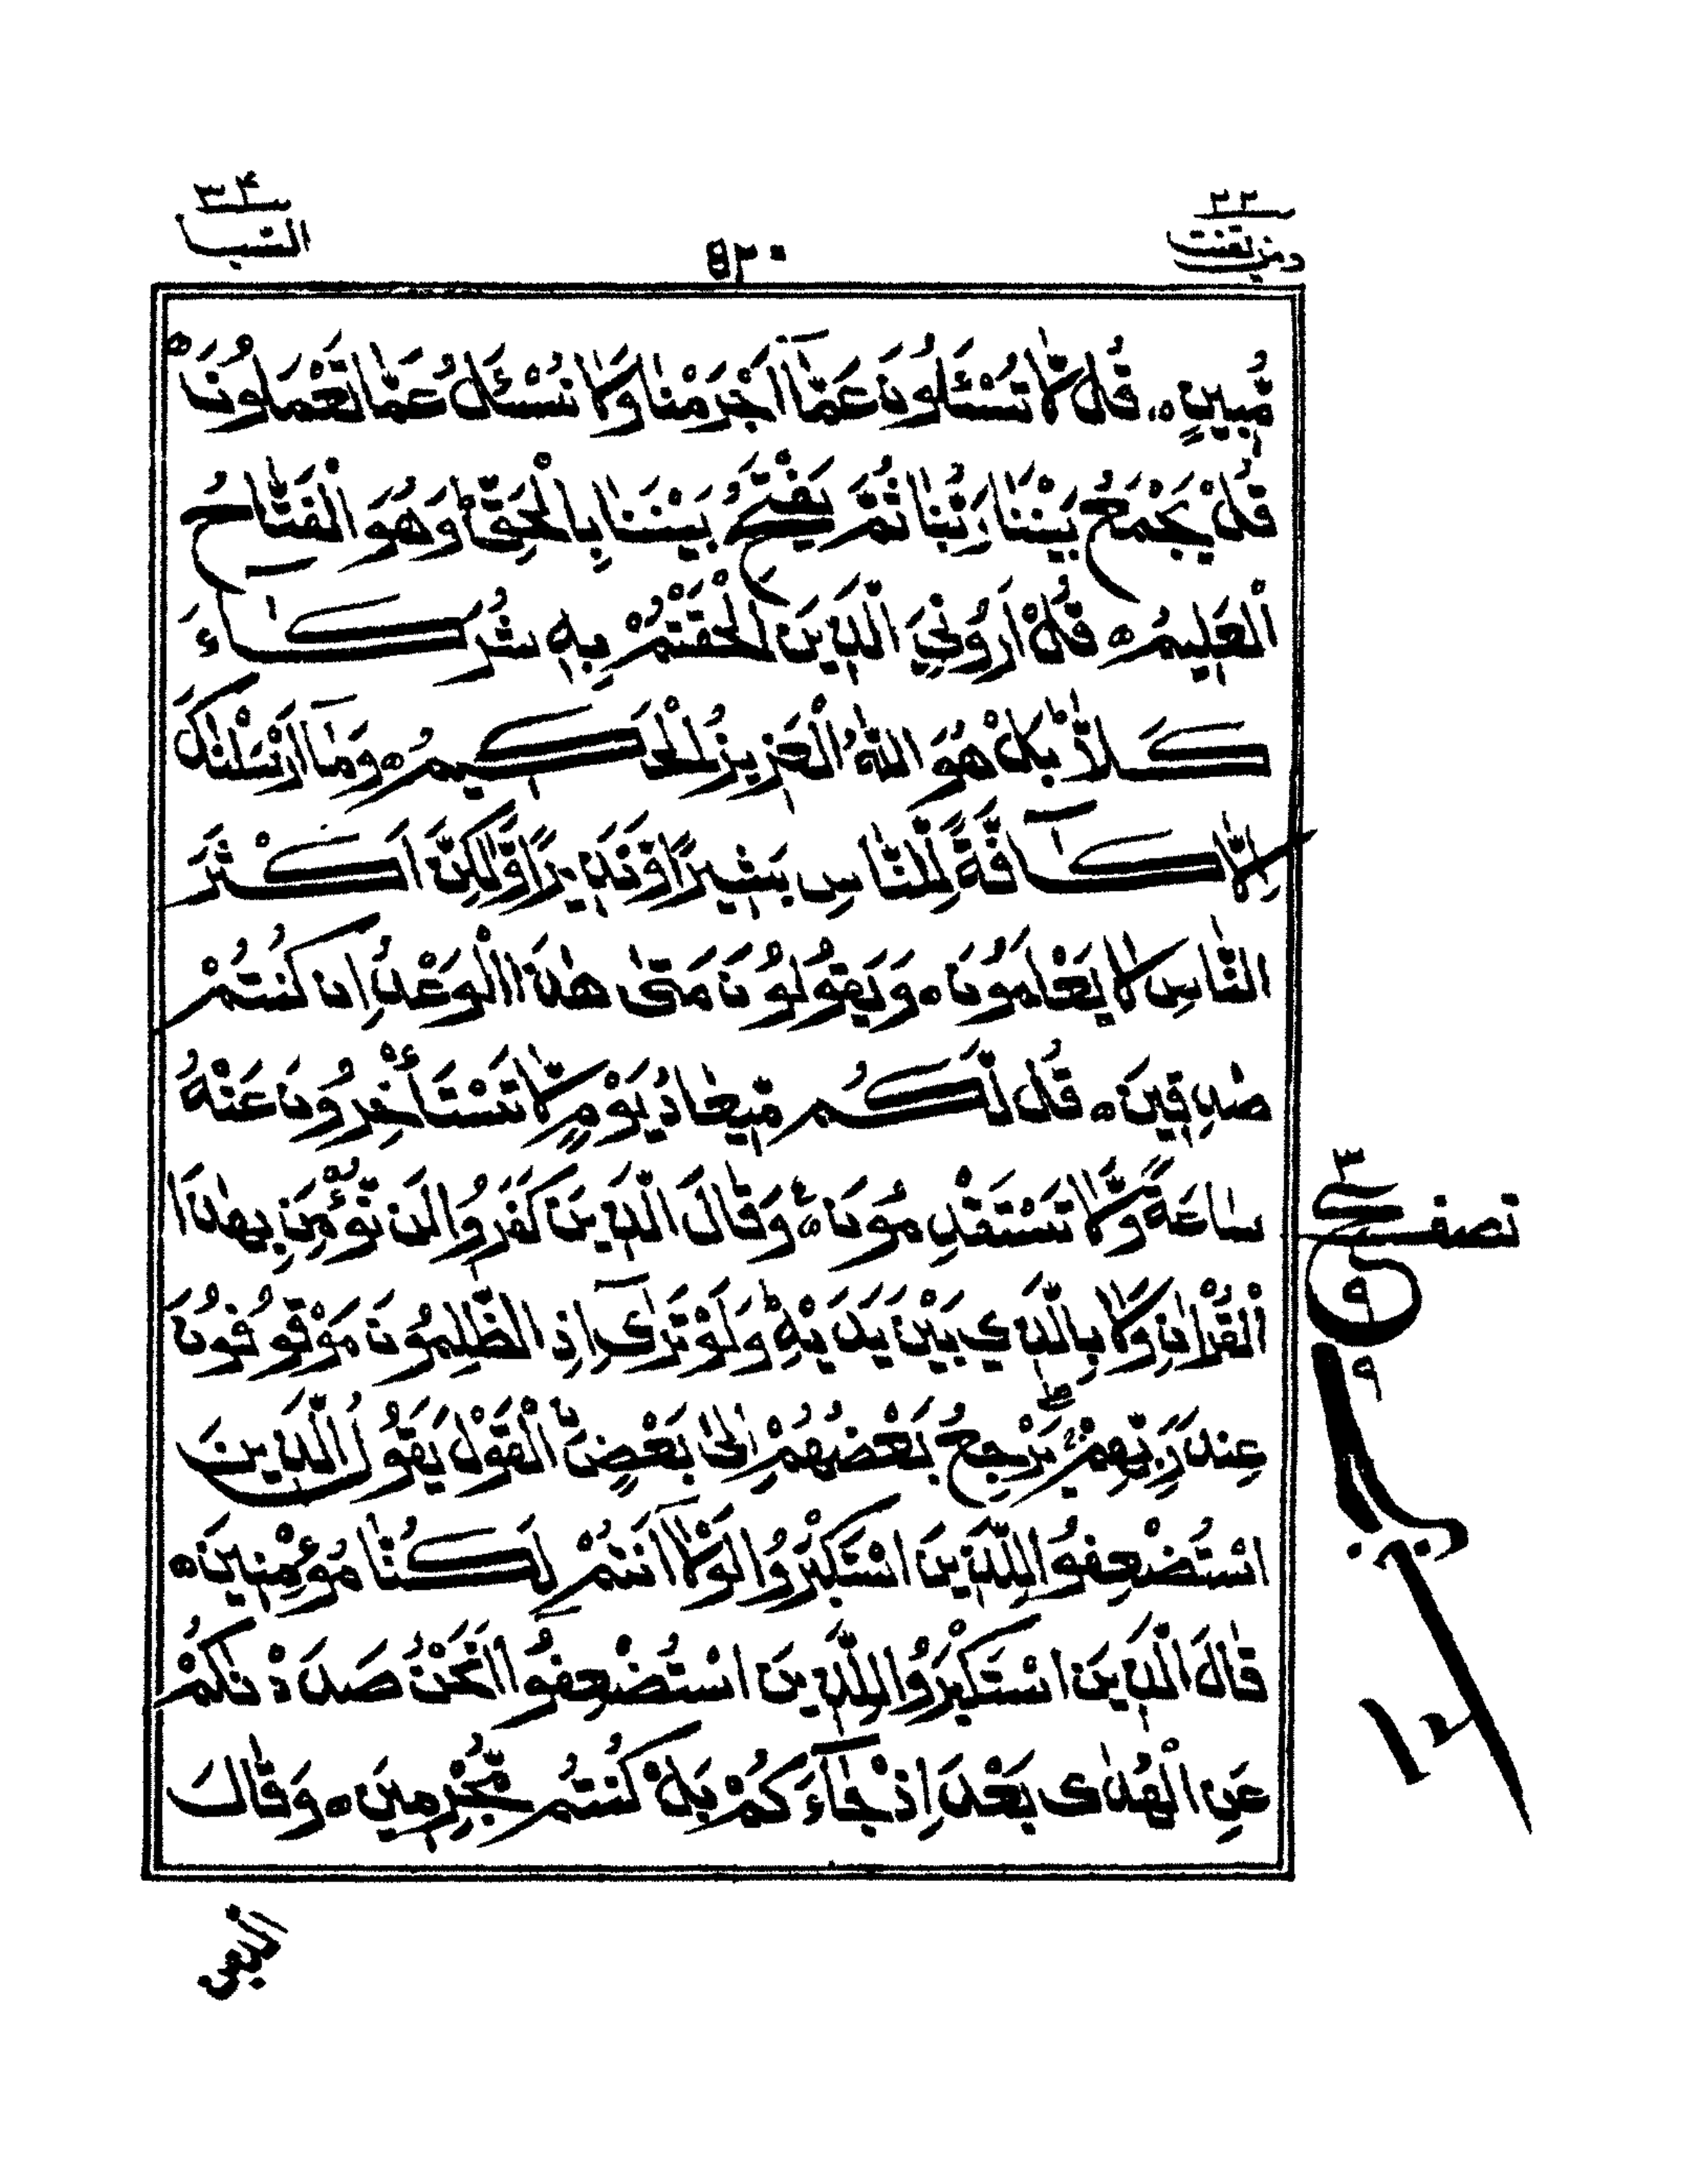 ومن يقنت ٢٢
٥٢٠
السبا ٣٤
مُّبِيْنٍ ۝ قُلْ لَّا تُسْـَٔلُوْنَ عَمَّاۤ اَجْرَمْنَا وَلَا نُسْـَٔلُ عَمَّا تَعْمَلُوْنَ ۝
قُلْ يَجْمَعُ بَيْنَنَا رَبُّنَا ثُمَّ يَفْتَحُ بَيْنَنَا بِالْحَقِّ ؕ وَهُوَ الْفَتَّاحُ
الْعَلِيْمُ ۝ قُلْ اَرُوْنِيَ الَّذِيْنَ اَلْحَقْتُمْ بِهٖ شُرَكَآءَ
كَلَّا ؕ بَلْ هُوَ اللّٰهُ الْعَزِيْزُ الْحَكِيْمُ ۝ وَمَاۤ اَرْسَلْنٰكَ
اِلَّا كَآفَّةً لِّلنَّاسِ بَشِيْرًا وَّنَذِيْرًا وَّلٰكِنَّ اَكْثَرَ
النَّاسِ لَا يَعْلَمُوْنَ ۝ وَيَقُوْلُوْنَ مَتٰى هٰذَا الْوَعْدُ اِنْ كُنْتُمْ
صٰدِقِيْنَ ۝ قُلْ لَّكُمْ مِّيْعَادُ يَوْمٍ لَّا تَسْتَأْخِرُوْنَ عَنْهُ
سَاعَةً وَّلَا تَسْتَقْدِمُوْنَ ۝ وَقَالَ الَّذِيْنَ كَفَرُوْا لَنْ نُّؤْمِنَ بِهٰذَا
الْقُرْاٰنِ وَلَا بِالَّذِيْ بَيْنَ يَدَيْهِ ؕ وَلَوْ تَرٰۤى اِذِ الظّٰلِمُوْنَ مَوْقُوْفُوْنَ
عِنْدَ رَبِّهِمْ ۖ يَرْجِعُ بَعْضُهُمْ اِلٰى بَعْضِ ۨالْقَوْلَ ۚ يَقُوْلُ الَّذِيْنَ
اسْتُضْعِفُوْا لِلَّذِيْنَ اسْتَكْبَرُوْا لَوْلَاۤ اَنْتُمْ لَكُنَّا مُؤْمِنِيْنَ ۝
قَالَ الَّذِيْنَ اسْتَكْبَرُوْا لِلَّذِيْنَ اسْتُضْعِفُوْۤا اَنَحْنُ صَدَدْنٰكُمْ
عَنِ الْهُدٰى بَعْدَ اِذْ جَآءَكُمْ بَلْ كُنْتُمْ مُّجْرِمِيْنَ ۝ وَقَالَ
٣
ع
نصف
٩
٩